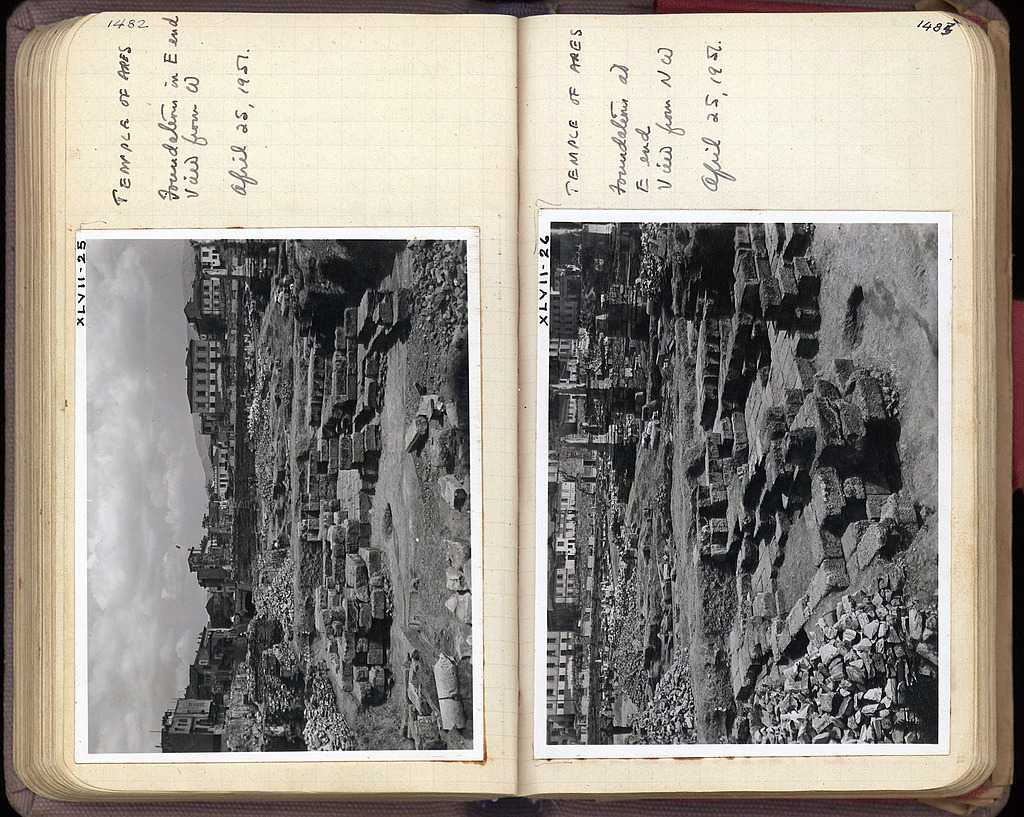 1482
TEMPLE OF ARES
Foundations in E end
View from W
April 25, 1951.
XLVII-25
1483
TEMPLE OF ARES
Foundations at
E end
View from NW
April 25, 1951.
XLVII-26